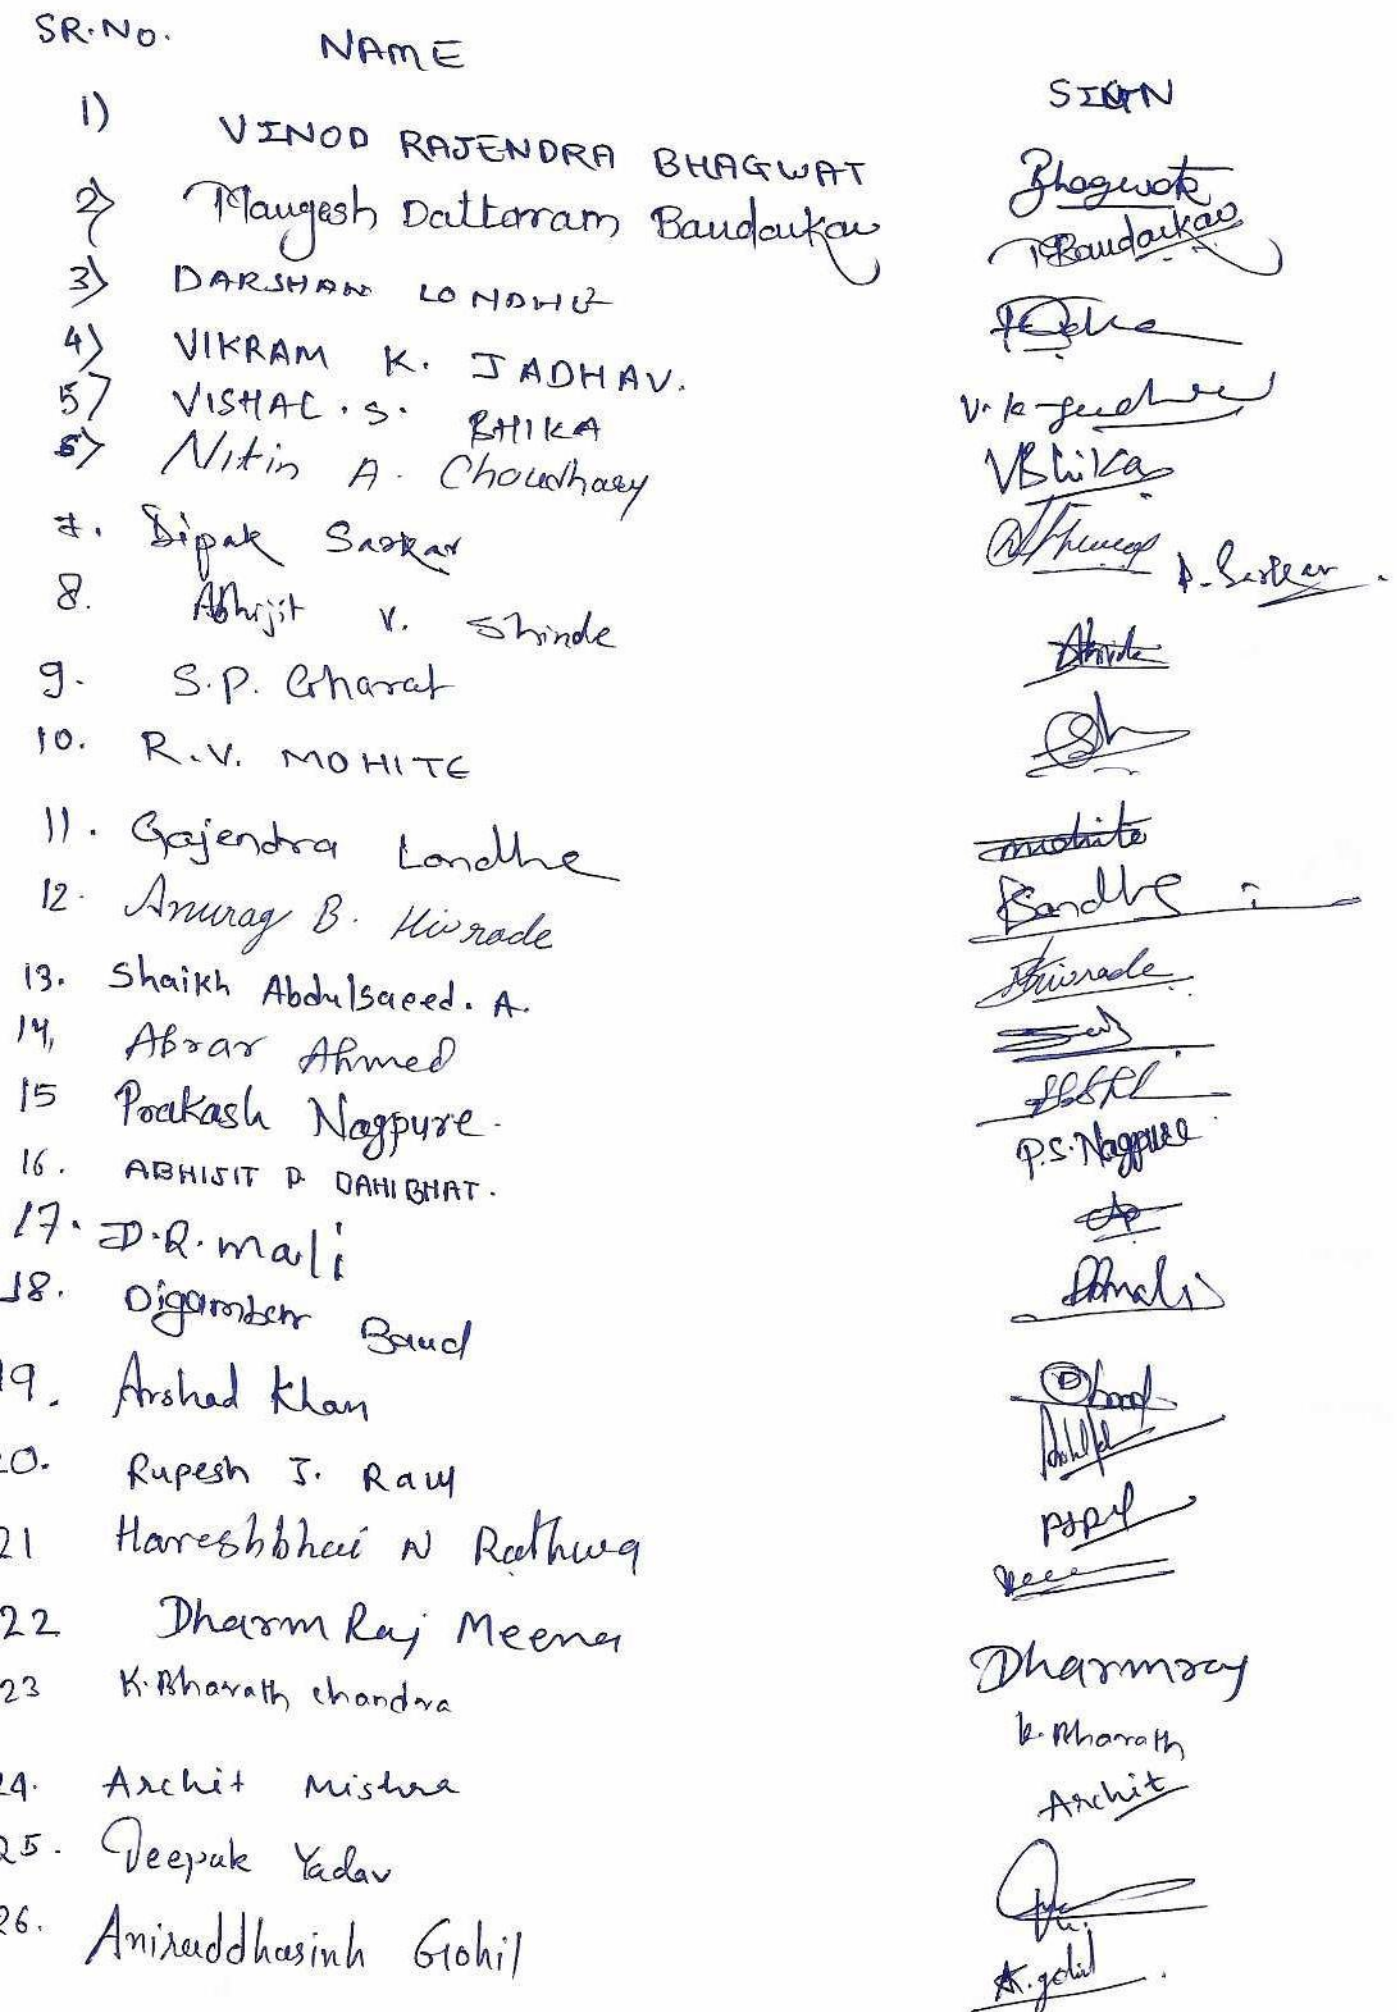 SR.No. NAME SIGN
1) VINOD RAJENDRA BHAGWAT Bhagwat
2) Mangesh Dattaram Bandarkar MBandarkar
3) DARSHAN LONDHE
4) VIKRAM K. JADHAV. V.K.
5) VISHAL.S. BHIKA VBhika
6) Nitin A. Choudhary
7. Dipak Sarkar D.Sarkar
8. Abhijit V. Shinde
9. S.P. Gharat
10. R.V. MOHITE mohite
11. Gajendra Londhe
12. Anurag B. Hivrade Hivrade
13. Shaikh Abdulsaeed. A.
14, Abrar Ahmed
15 Prakash Nagpure. P.S.Nagpure
16. ABHIJIT D. DAHIBHAT.
17. D.R.mali DRmali
18. Digamber Baud
19. Arshad Khan
20. Rupesh J. Raul
21 Hareshbhai N Rathwa
22 Dharm Raj Meena Dharmraj
23 K.Bharath chandra K.Bharath
24. Archit Mishra Archit
25. Deepak Yadav
26. Aniruddhasinh Gohil A.gohil